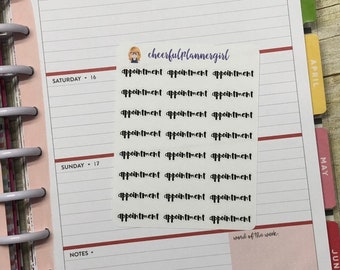 cheerfulplannergirl
appointment appointment appointment
SATURDAY • 16
appointment appointment appointment
appointment appointment appointment
appointment appointment appointment
appointment appointment appointment
SUNDAY • 17
appointment appointment appointment
appointment appointment appointment
appointment appointment appointment
word of the week
NOTES •
APRIL
MAY
JUN